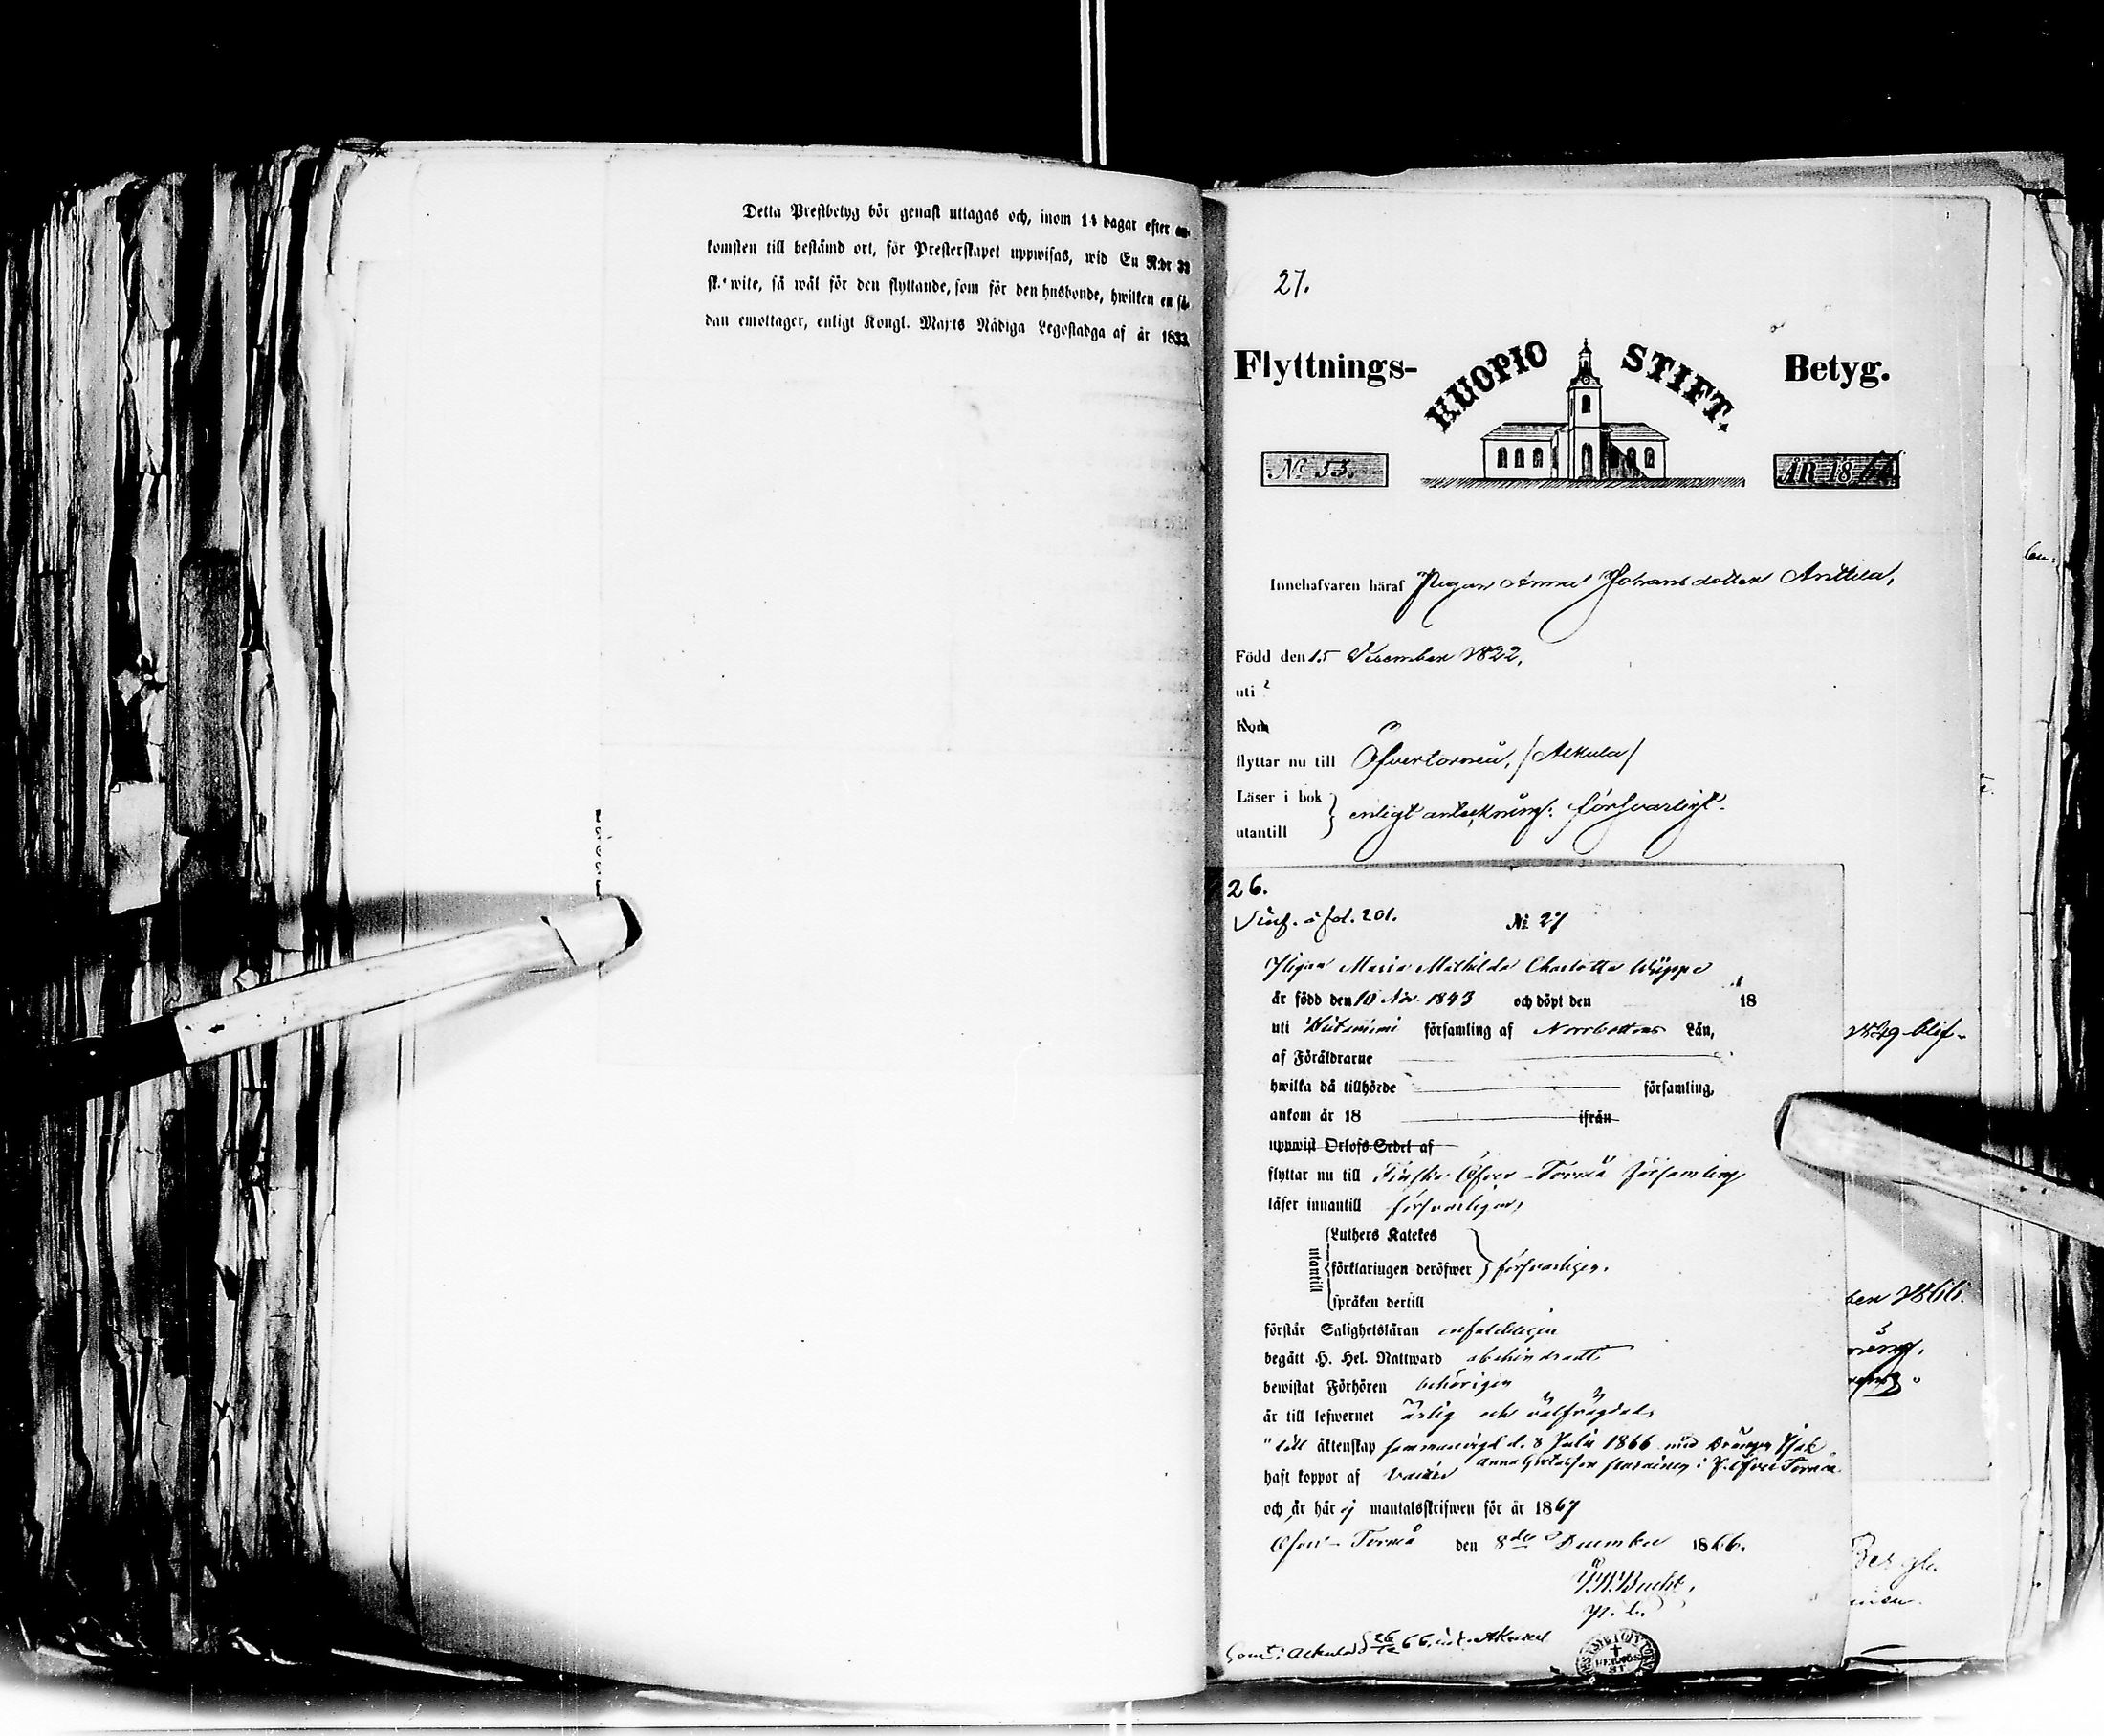 Detta Prestbetyg bör genast uttagas och, inom 14 dagar efter an-
komsten till bestämd ort, för Presterskapet uppwisas, wid En R:dr 32
sk. wite, så wäl för den flyttande, som för den husbonde, hwilken en så-
dan emottager, enligt Kongl. Maj:ts Nådiga Legostadga af år 1833.
27.
Flyttnings- KUOPIO STIFT. Betyg.
No 53. ÅR 18
Innehafvaren häraf Pigan Anna Johansdotter Anttila,
Född den 15 December 1822,
uti
Kom
flyttar nu till Öfvertorneå, /Alkula/
Läser i bok
utantill
enligt anteckning: försvarligt.
26.
fol. 201. No 27
Pigan Maria Mathilda Charlotta
är född den 10 Nov. 1843 och döpt den 18
uti Hietaniemi församling af Norrbottens Län,
af Föräldrarne
hwilka då tillhörde församling,
ankom år 18 ifrån
uppwist Orlofs-Sedel af
flyttar nu till Finska Öfver-Torneå församling
läser innantill försvarligen,
utantill
Luthers Katekes
förklaringen deröfwer försvarligen.
språken dertill
förstår Salighetsläran enfaldeligen
begått H. Hel. Nattward obehindradt
bewistat Förhören behörigen
är till lefwernet ärlig och välfrägdad,
" till äktenskap sammanvigd d. 8 Julii 1866 med Drängen Isak
haft koppor af i F. Öfver Torneå
och är här ej mantalsskrifwen för år 1867
Öfver-Torneå den 8de December 1866.
v. p.
26/12 66
1849 blif-
ber 1866.